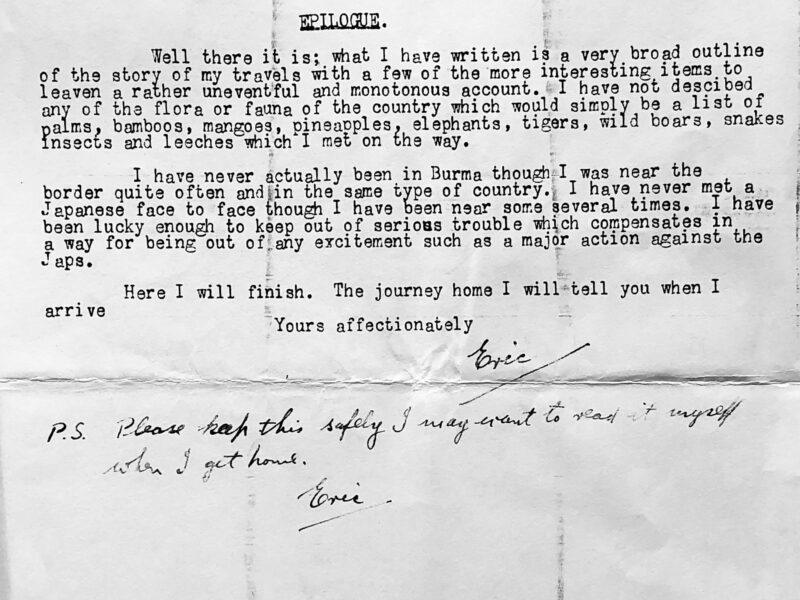 EPILOGUE.
Well there it is; what I have written is a very broad outline
of the story of my travels with a few of the more interesting items to
leaven a rather uneventful and monotonous account. I have not descibed
any of the flora or fauna of the country which would simply be a list of
palms, bamboos, mangoes, pineapples, elephants, tigers, wild boars, snakes
insects and leeches which I met on the way.
I have never actually been in Burma though I was near the
border quite often and in the same type of country. I have never met a
Japanese face to face though I have been near some several times. I have
been lucky enough to keep out of serious trouble which compensates in
a way for being out of any excitement such as a major action against the
Japs.
Here I will finish. The journey home I will tell you when I
arrive
Yours affectionately
Eric
P.S. Please keep this safely I may want to read it myself
when I get home.
Eric